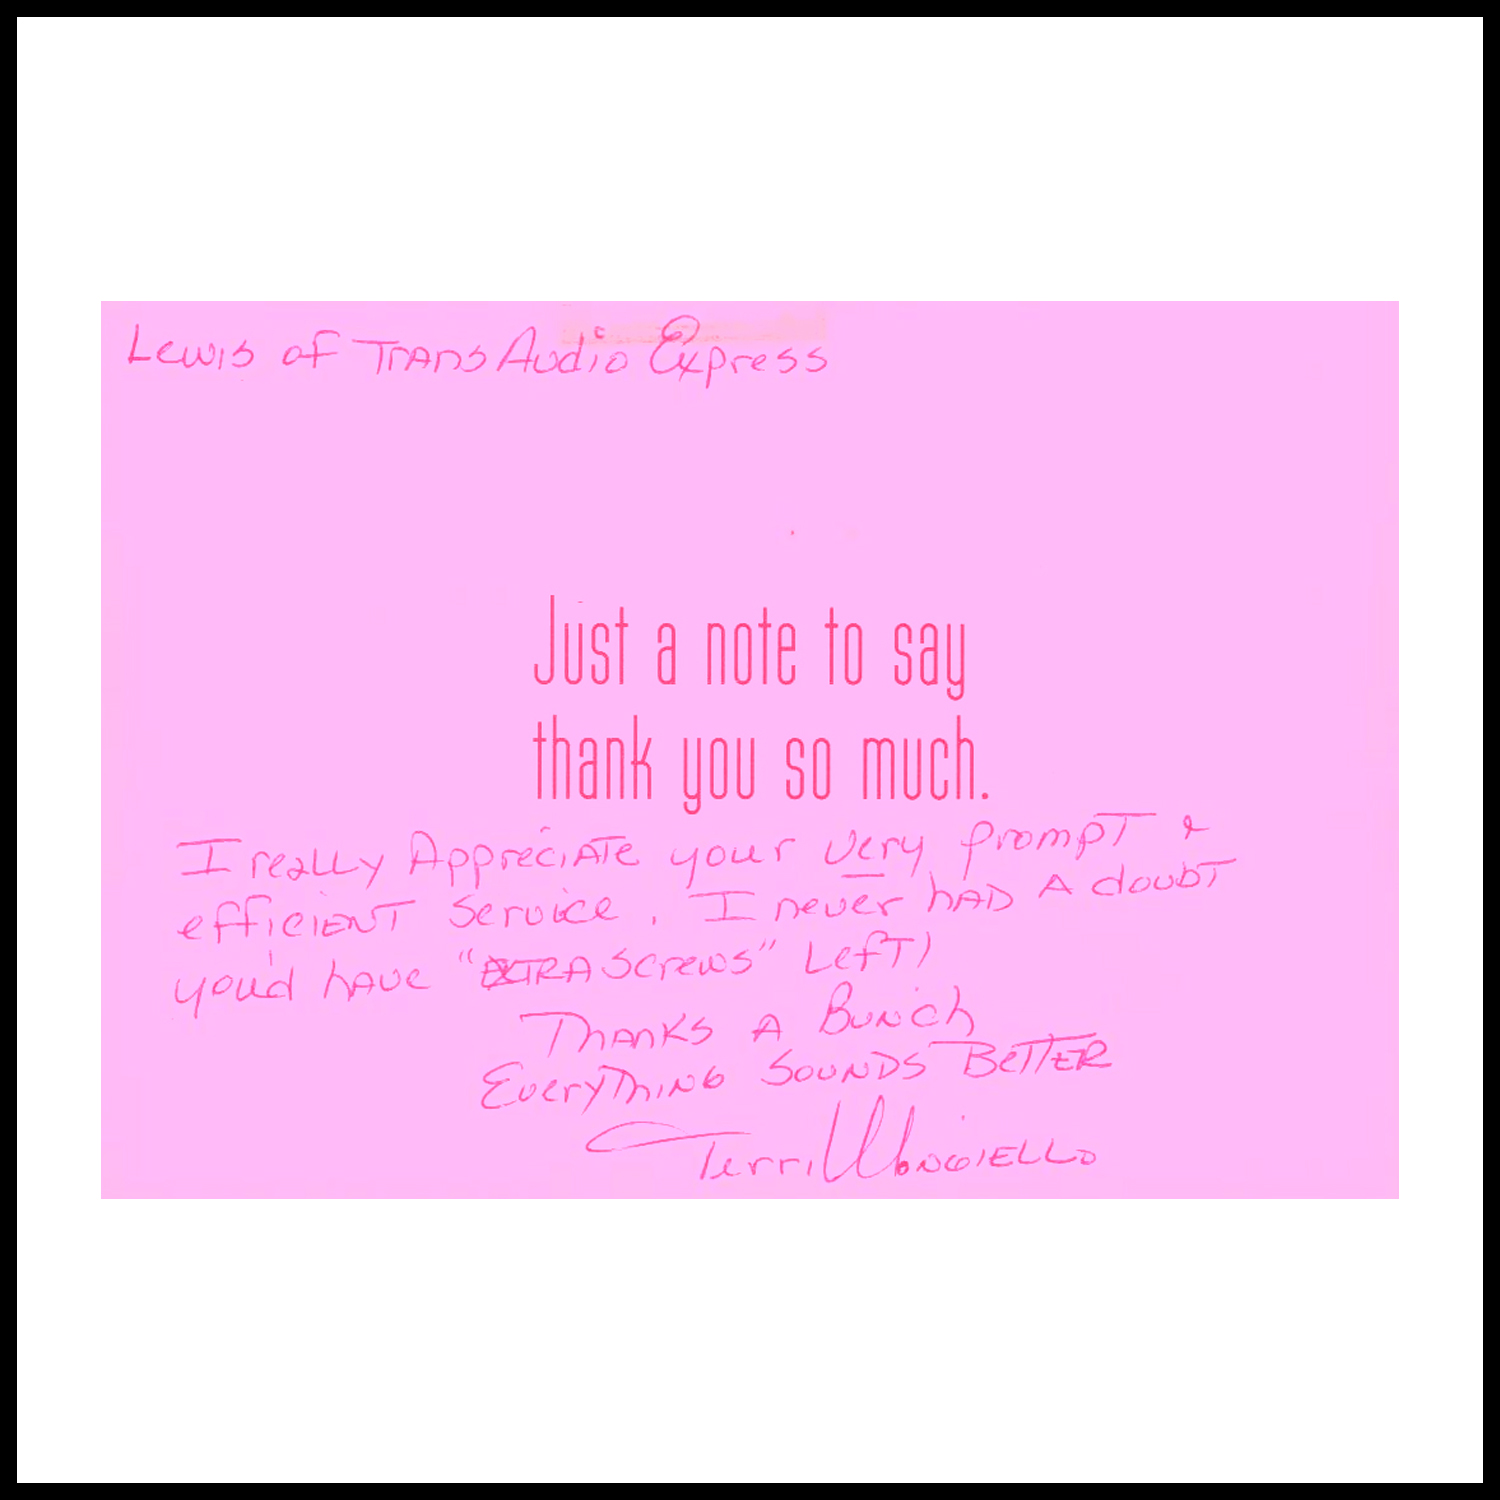 Lewis of Trans Audio Express
Just a note to say
thank you so much.
I really Appreciate your very prompt &
efficient service. I never had a doubt
you'd have "EXTRA screws" Left!
Thanks A Bunch
Everything Sounds Better
Terri Mongiello